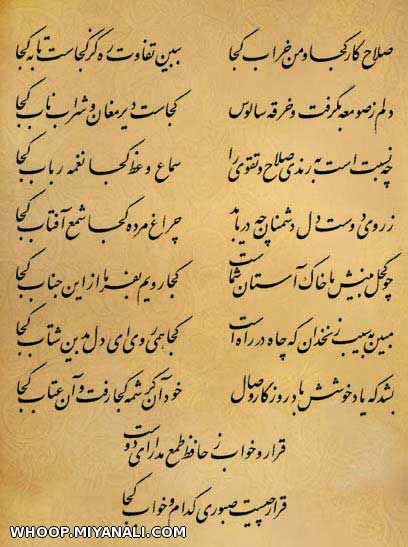 صلاح کار کجا و من خراب کجا ببین تفاوت ره کز کجاست تا به کجا
دلم ز صومعه بگرفت و خرقه سالوس کجاست دیر مغان و شراب ناب کجا
چه نسبت است به رندی صلاح و تقوی را سماع وعظ کجا نغمه رباب کجا
ز روی دوست دل دشمنان چه دریابد چراغ مرده کجا شمع آفتاب کجا
چو کحل بینش ما خاک آستان شماست کجا رویم بفرما از این جناب کجا
مبین به سیب زنخدان که چاه در راه است کجا همی روی ای دل بدین شتاب کجا
بشد که یاد خوشش باد روزگار وصال خود آن کرشمه کجا رفت و آن عتاب کجا
قرار و خواب ز حافظ طمع مدار ای دوست
قرار چیست صبوری کدام و خواب کجا
WHOOP.MIYANALI.COM